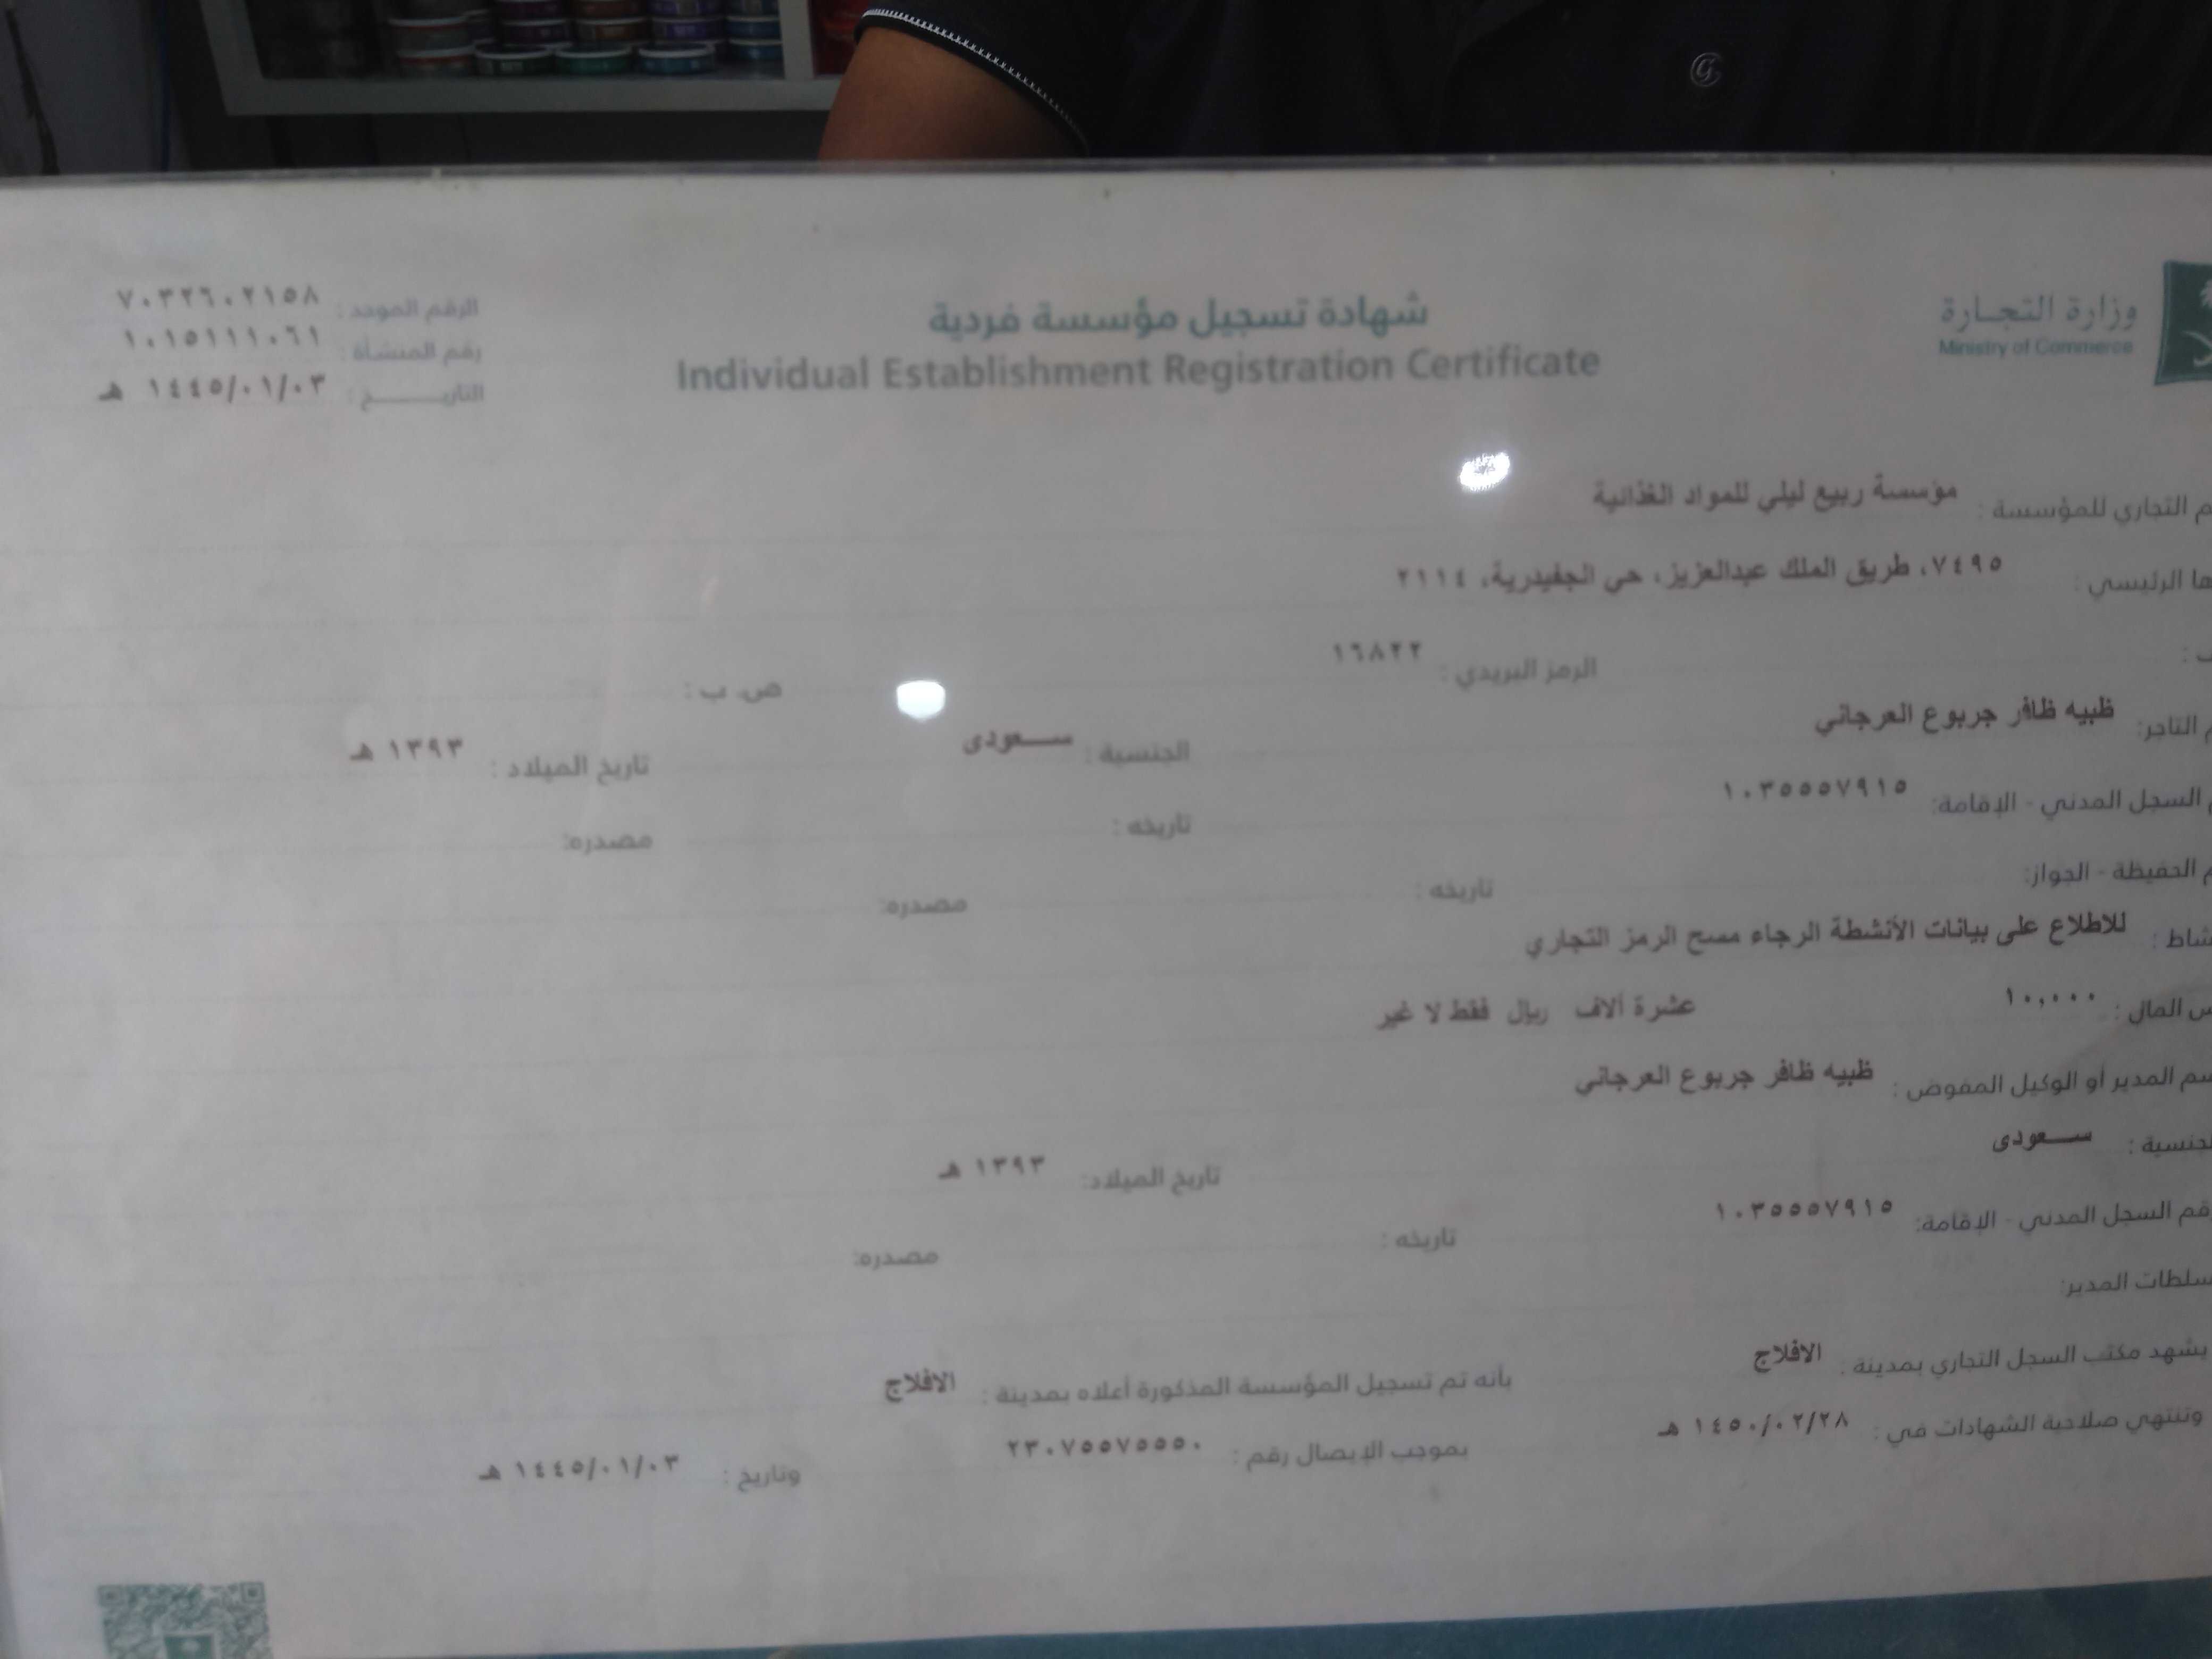 وزارة التجارة
Ministry of Commerce
شهادة تسجيل مؤسسة فردية
Individual Establishment Registration Certificate
الرقم الموحد : ٧٠٣٢٦٠٢١٥٨
رقم المنشأة : ١٠١٥١١١٠٦١
التاريـــــــخ : ١٤٤٥/٠١/٠٣ هـ
م التجاري للمؤسسة : مؤسسة ربيع ليلي للمواد الغذائية
ها الرئيسي : ٧٤٩٥، طريق الملك عبدالعزيز، حي الجفيدرية، ٢١١٤
ف : الرمز البريدي : ١٦٨٢٢ ص. ب :
م التاجر: ظبيه ظافر جربوع العرجاني الجنسية : ســـعودى تاريخ الميلاد : ١٣٩٣ هـ
م السجل المدني - الإقامة: ١٠٣٥٥٥٧٩١٥ تاريخه : مصدره:
م الحفيظة - الجواز: تاريخه : مصدره:
شاط : للاطلاع على بيانات الأنشطة الرجاء مسح الرمز التجاري
س المال : ١٠,٠٠٠ عشرة آلاف ريال فقط لا غير
سم المدير أو الوكيل المفوض : ظبيه ظافر جربوع العرجاني
لجنسية : ســـعودى تاريخ الميلاد: ١٣٩٣ هـ
قم السجل المدني - الإقامة: ١٠٣٥٥٥٧٩١٥ تاريخه : مصدره:
سلطات المدير:
يشهد مكتب السجل التجاري بمدينة : الافلاج بأنه تم تسجيل المؤسسة المذكورة أعلاه بمدينة : الافلاج
وتنتهي صلاحية الشهادات في : ١٤٥٠/٠٢/٢٨ هـ بموجب الإيصال رقم : ٢٣٠٧٥٥٧٥٥٥٠ وتاريخ : ١٤٤٥/٠١/٠٣ هـ